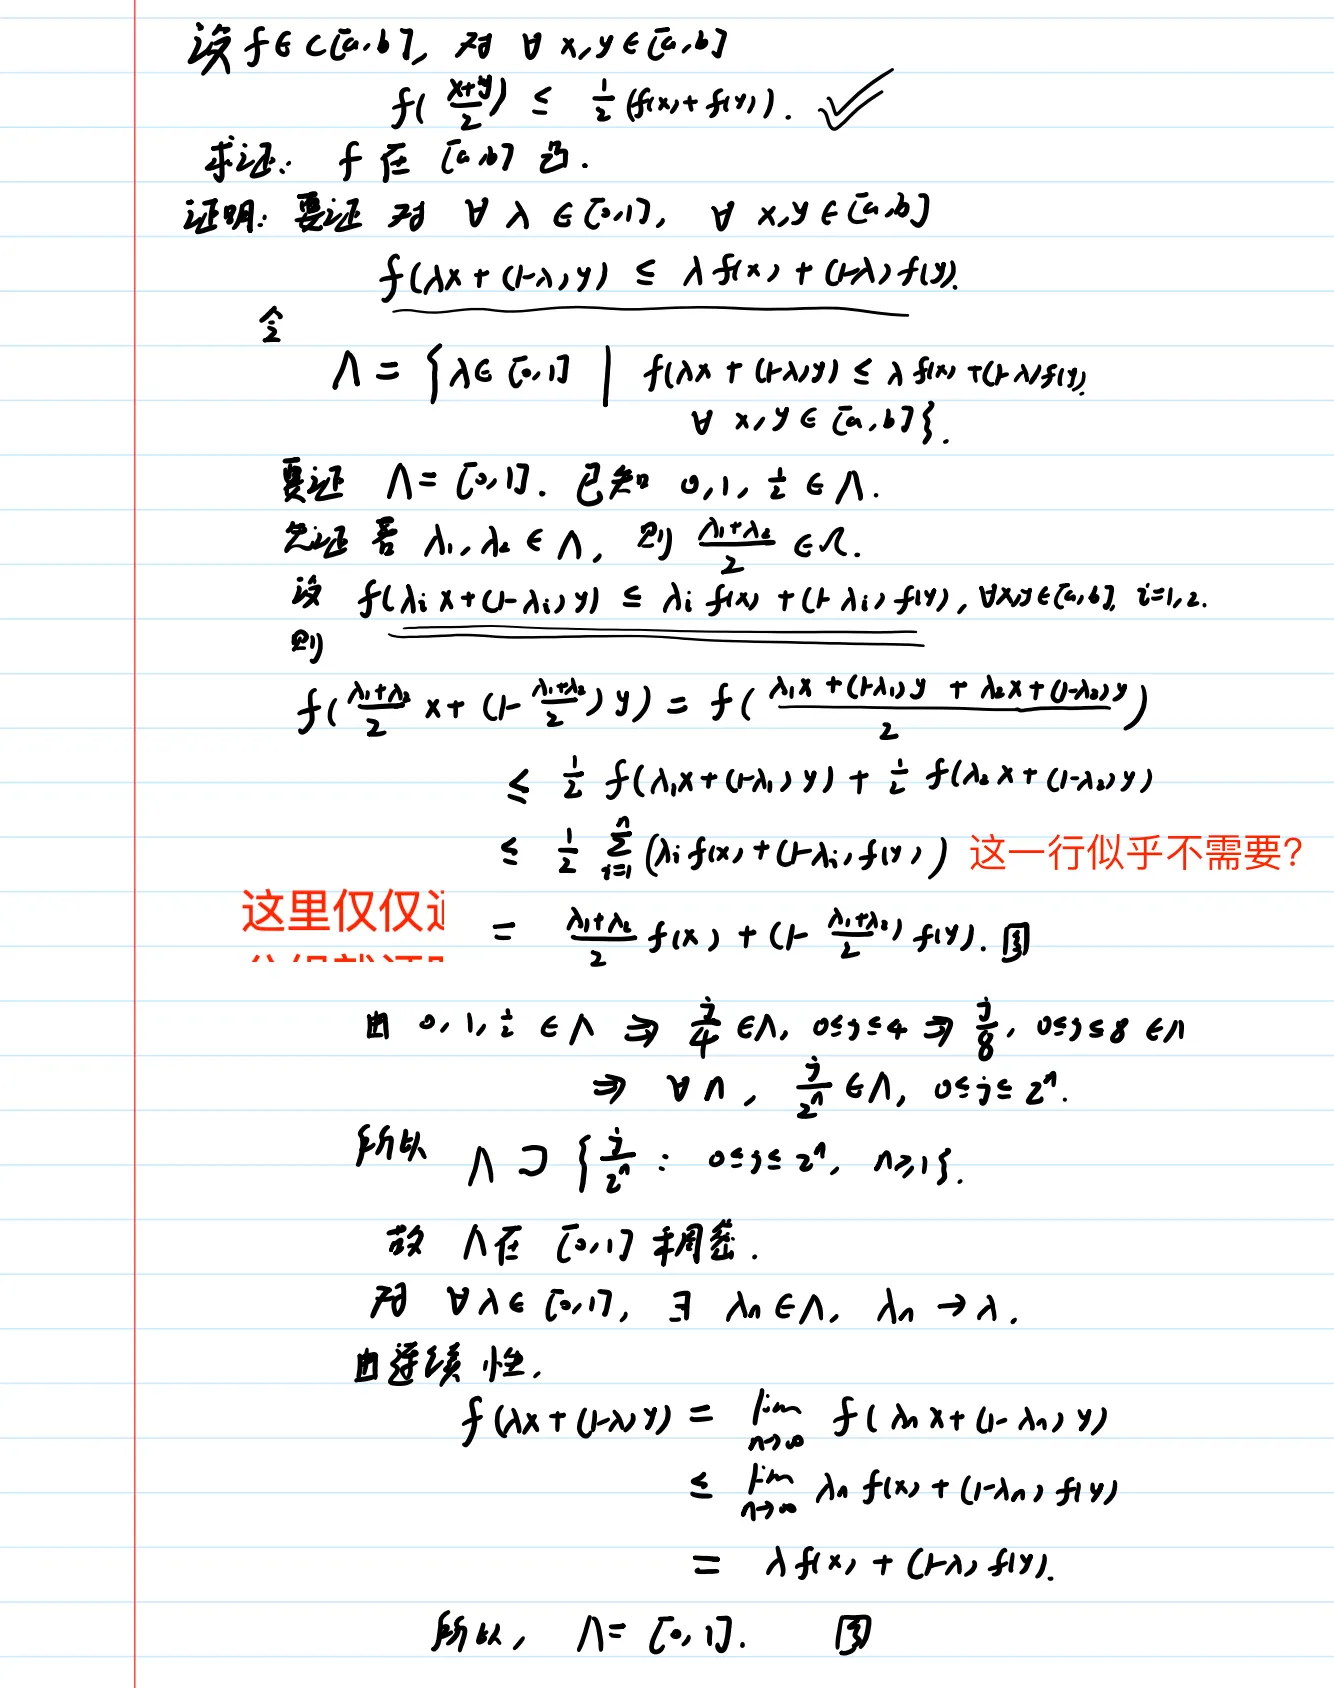 设 f∈C[a,b], 对 ∀ x,y∈[a,b]
f(\frac{x+y}{2}) ≤ \frac{1}{2}(f(x)+f(y)).
求证: f 在 [a,b] 凸.
证明: 要证 对 ∀ λ ∈[0,1], ∀ x,y∈[a,b]
f(λx+(1-λ)y) ≤ λf(x)+(1-λ)f(y).
令
Λ = {λ∈[0,1] | f(λx+(1-λ)y) ≤ λf(x)+(1-λ)f(y),
∀ x,y∈[a,b]}.
要证 Λ=[0,1]. 已知 0,1,\frac{1}{2}∈Λ.
先证 若 λ₁,λ₂∈Λ, 则 \frac{λ₁+λ₂}{2}∈Λ.
设 f(λᵢx+(1-λᵢ)y) ≤ λᵢf(x)+(1-λᵢ)f(y), ∀x,y∈[a,b], i=1,2.
则
f(\frac{λ₁+λ₂}{2}x+(1-\frac{λ₁+λ₂}{2})y) = f(\frac{λ₁x+(1-λ₁)y+λ₂x+(1-λ₂)y}{2})
≤ \frac{1}{2}f(λ₁x+(1-λ₁)y)+\frac{1}{2}f(λ₂x+(1-λ₂)y)
≤ \frac{1}{2}\sum_{i=1}^{n}(λᵢf(x)+(1-λᵢ)f(y)) 这一行似乎不需要?
这里仅仅
= \frac{λ₁+λ₂}{2}f(x)+(1-\frac{λ₁+λ₂}{2})f(y).
由 0,1,\frac{1}{2}∈Λ ⇒ \frac{j}{4}∈Λ, 0≤j≤4 ⇒ \frac{j}{8}, 0≤j≤8 ∈Λ
⇒ ∀n, \frac{j}{2ⁿ}∈Λ, 0≤j≤2ⁿ.
所以 Λ⊃{\frac{j}{2ⁿ}: 0≤j≤2ⁿ, n≥1}.
故 Λ在 [0,1] 稠密.
对 ∀λ∈[0,1], ∃ λₙ∈Λ, λₙ→λ.
由连续性,
f(λx+(1-λ)y) = \lim_{n→∞} f(λₙx+(1-λₙ)y)
≤ \lim_{n→∞} λₙf(x)+(1-λₙ)f(y)
= λf(x)+(1-λ)f(y).
所以, Λ=[0,1].